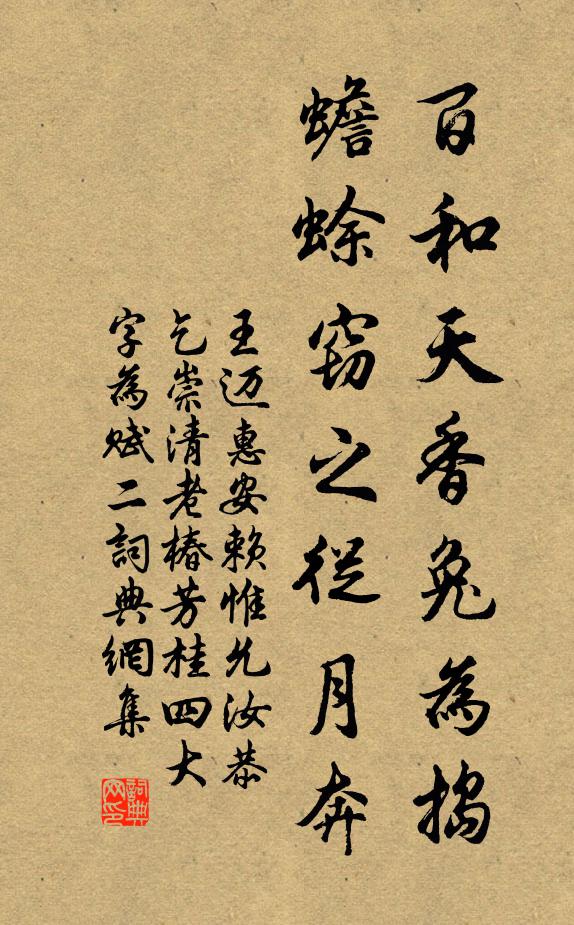 百和天香兔為搗
蟾蜍窃之從月奔
王迈惠安赖惟允汝恭
乞崇清老椿芳桂四大
字為赋二詞典網集
詞典网印